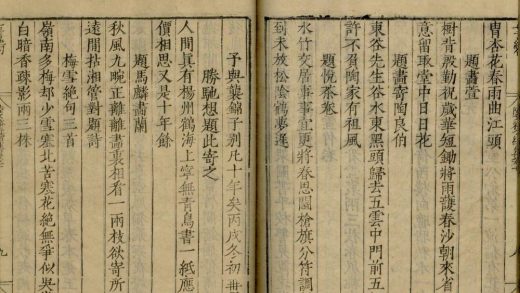 杏花春雨曲江頭
題畫萱
樹背殷勤祝歲華短鋤將雨護春沙朝來省
意留取堂中日日花
題畫寄陶良伯
東谷先生谷水東黑頭歸去五雲中門前五
許不負陶家有祖風
題悅茶卷
水竹交居事事宜更將春思闘槍旗分符調
到未放松陰鶴夢遲
予與龔錦子別凡十年矣丙戌冬初
勝馳想題此寄之
人間真有楊州鶴海上寧無青鳥書一紙應
價相思又是十年餘
題馬麟畫蘭
秋風九畹正離離畵裏相看一兩枝欲寄所
遠閒拈湘管對顧詩
梅雪絶句三首
嶺南多梅却少雪塞北苦寒花絶無爭似吳
白暗香疎影兩三株
九